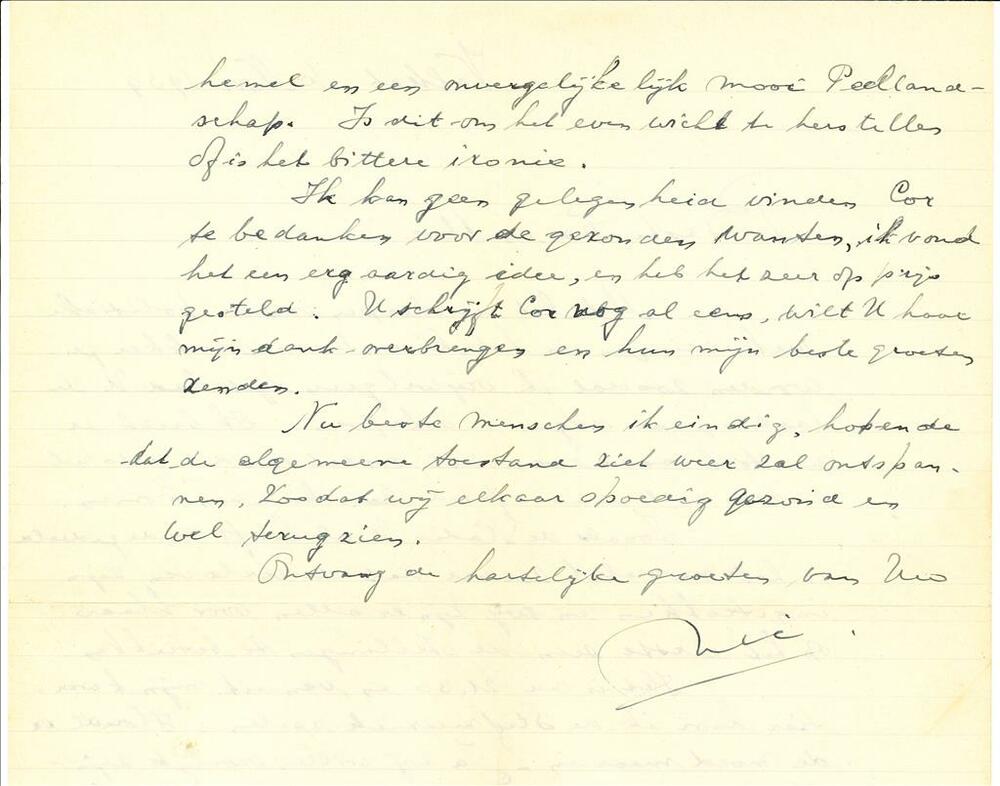 hemel en een onvergelijkelijk mooi Peelland-
schap. Is dit om het evenwicht te herstellen
Of is het bittere ironie.
Ik kan geen gelegenheid vinden Cor
te bedanken voor de gezonden wanten, ik vond
het een erg aardig idee, en heb het zeer op prijs
gesteld. U schrijft Cor nog al eens, wilt U haar
mijn dank overbrengen en hun mijn beste groeten
zenden.
Nu beste menschen ik eindig, hopende
dat de algemeene toestand ziet weer zal ontspan-
nen, Zoodat wij elkaar spoedig gezond en
wel terugzien.
Ontvang de hartelijke groeten van Uw